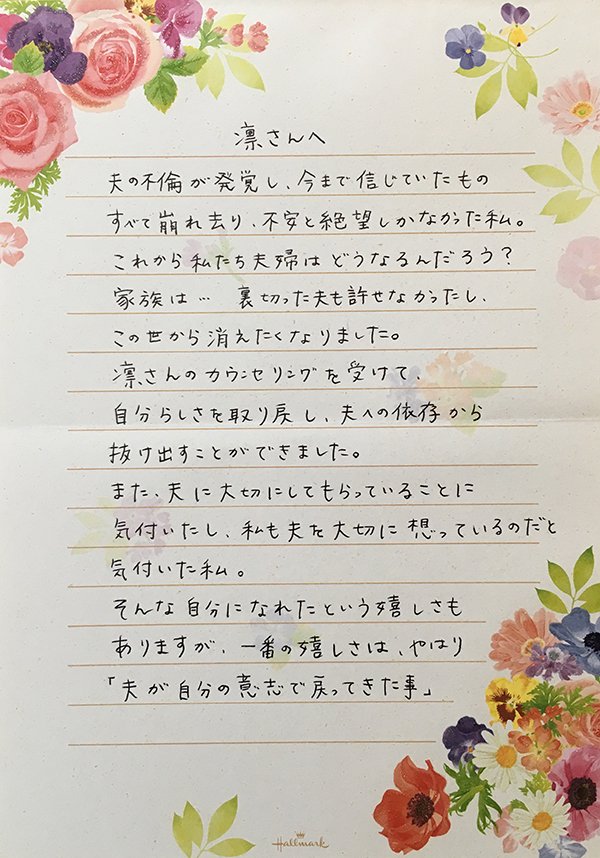 凛さんへ
夫の不倫が発覚し、今まで信じていたもの
すべて崩れ去り、不安と絶望しかなかった私。
これから私たち夫婦はどうなるんだろう？
家族は… 裏切った夫も許せなかったし、
この世から消えたくなりました。
凛さんのカウンセリングを受けて、
自分らしさを取り戻し、夫への依存から
抜け出すことができました。
また、夫に大切にしてもらっていることに
気付いたし、私も夫を大切に想っているのだと
気付いた私。
そんな自分になれたという嬉しさも
ありますが、一番の嬉しさは、やはり
「夫が自分の意志で戻ってきた事」
Hallmark